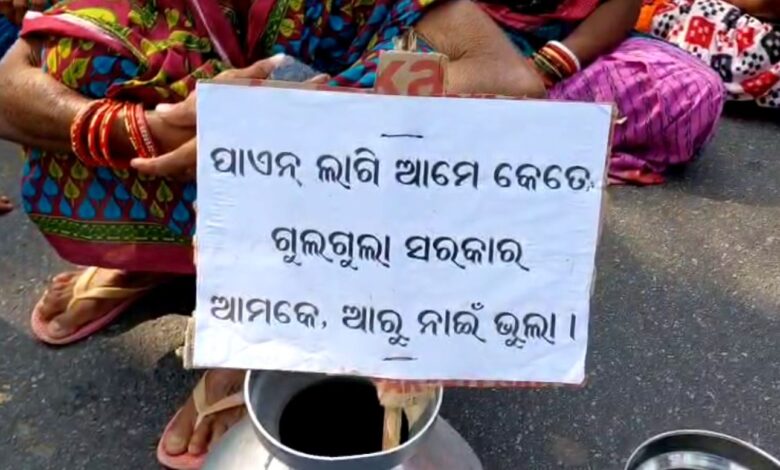 ପାଏନ୍ ଲାଗି ଆମେ କେତେ,
ଗୁଲଗୁଲା ସରକାର
ଆମକେ, ଆରୁ ନାଇଁ ଭୁଲା ।